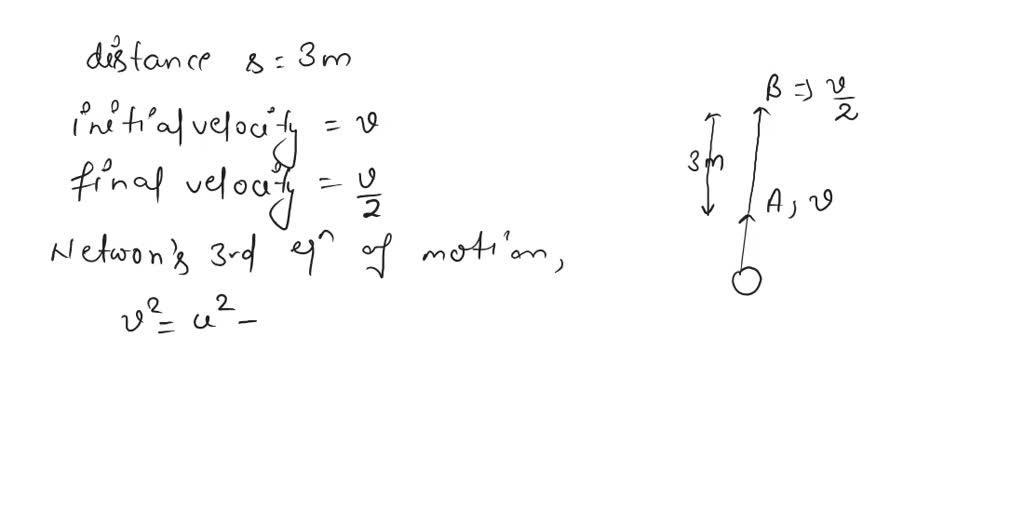 distance s = 3m
initial velocity = v
final velocity = v/2
Netwon's 3rd eqn of motion,
v² = u² –
B ⇒ v/2
3m
A, v